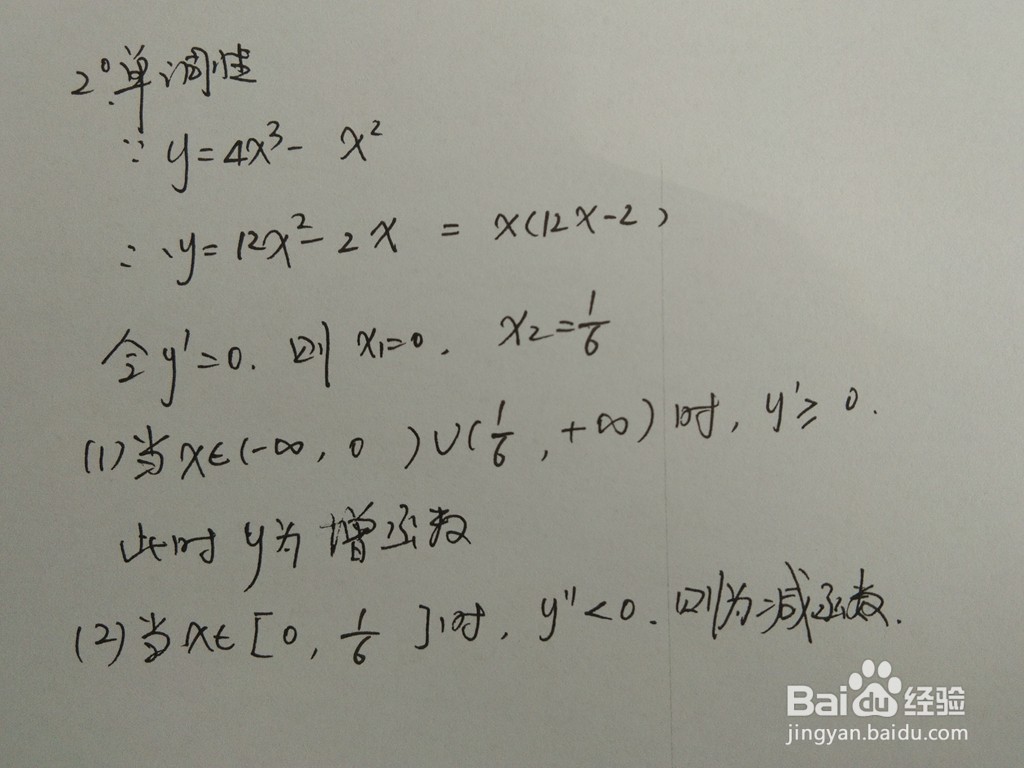 2°.单调性
∵ y=4x³- x²
∴ y=12x²-2x = x(12x-2)
令y'=0. 则 x₁=0. x₂=1/6
(1)当x∈(-∞, 0 )∪(1/6, +∞)时, y'≥0.
此时 y为 增函数
(2)当x∈[0, 1/6 ]时, y''<0. 则为减函数.
Bai 经验
jingyan.baidu.com